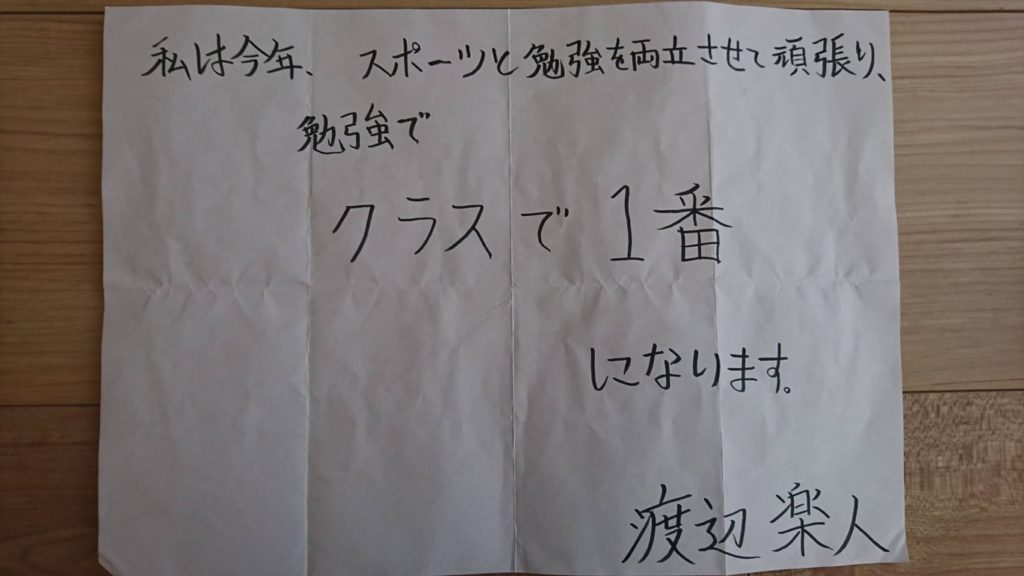 私は今年、スポーツと勉強を両立させて頑張り、
勉強で
クラスで1番
になります。
渡辺楽人